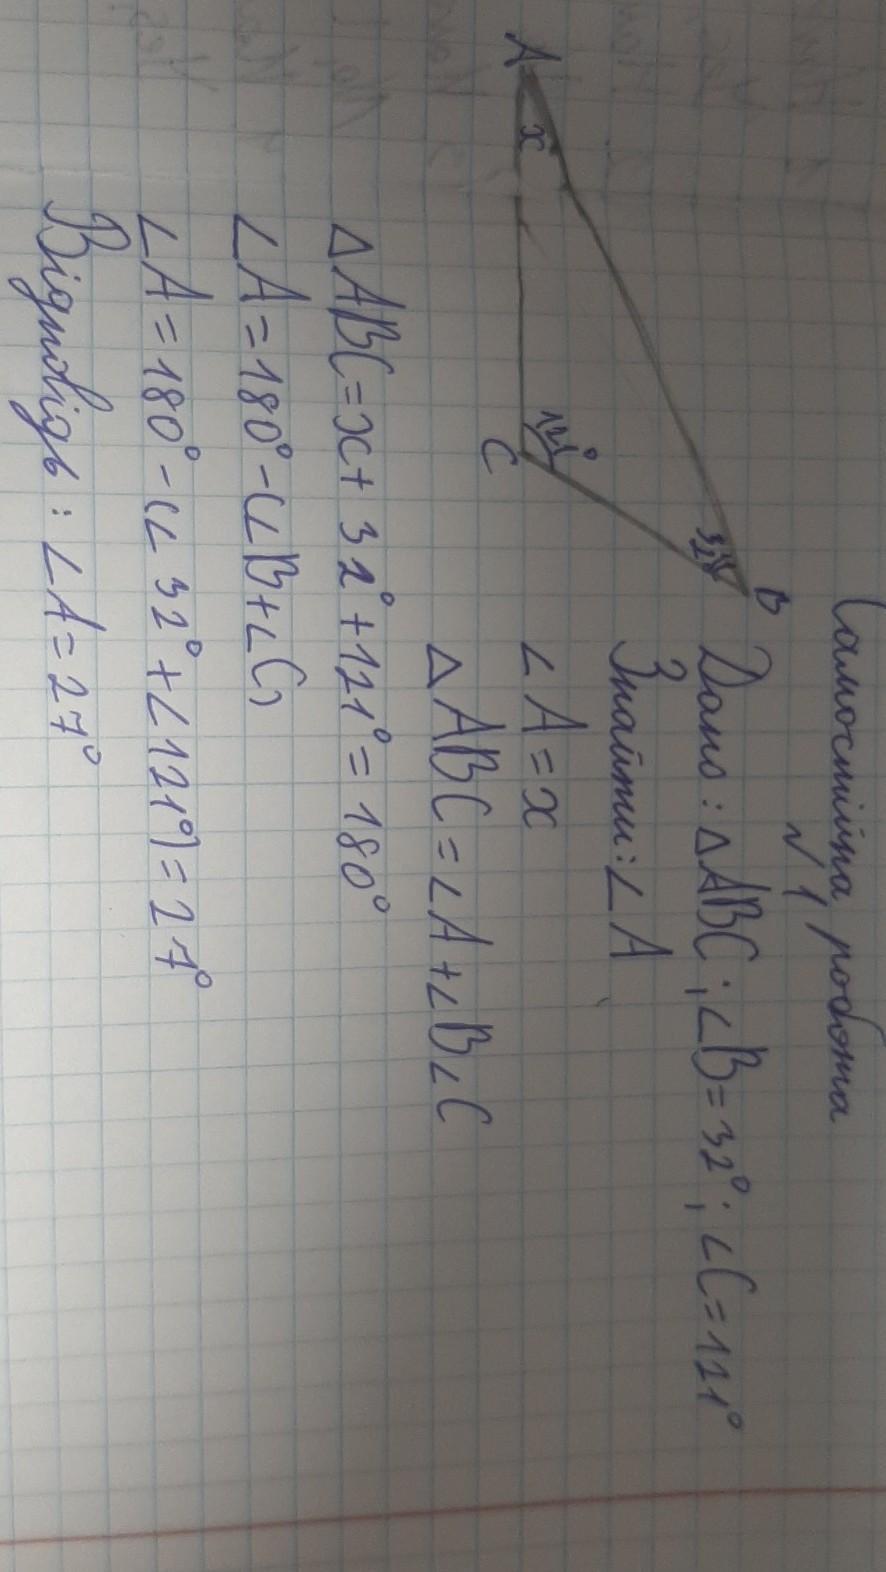 Самостійна робота
№1
Дано: △ABC; ∠B=32°; ∠C=121°
Знайти: ∠A
∠A=x
△ABC=∠A+∠B∠C
△ABC=x+32°+121°=180°
∠A=180°-(∠B+∠C)
∠A=180°-(∠32°+∠121°)=27°
Відповідь: ∠A=27°
A
x
C
121°
B
32°